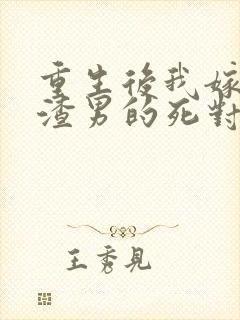 重生後我嫁
渣男的死對
王秀見